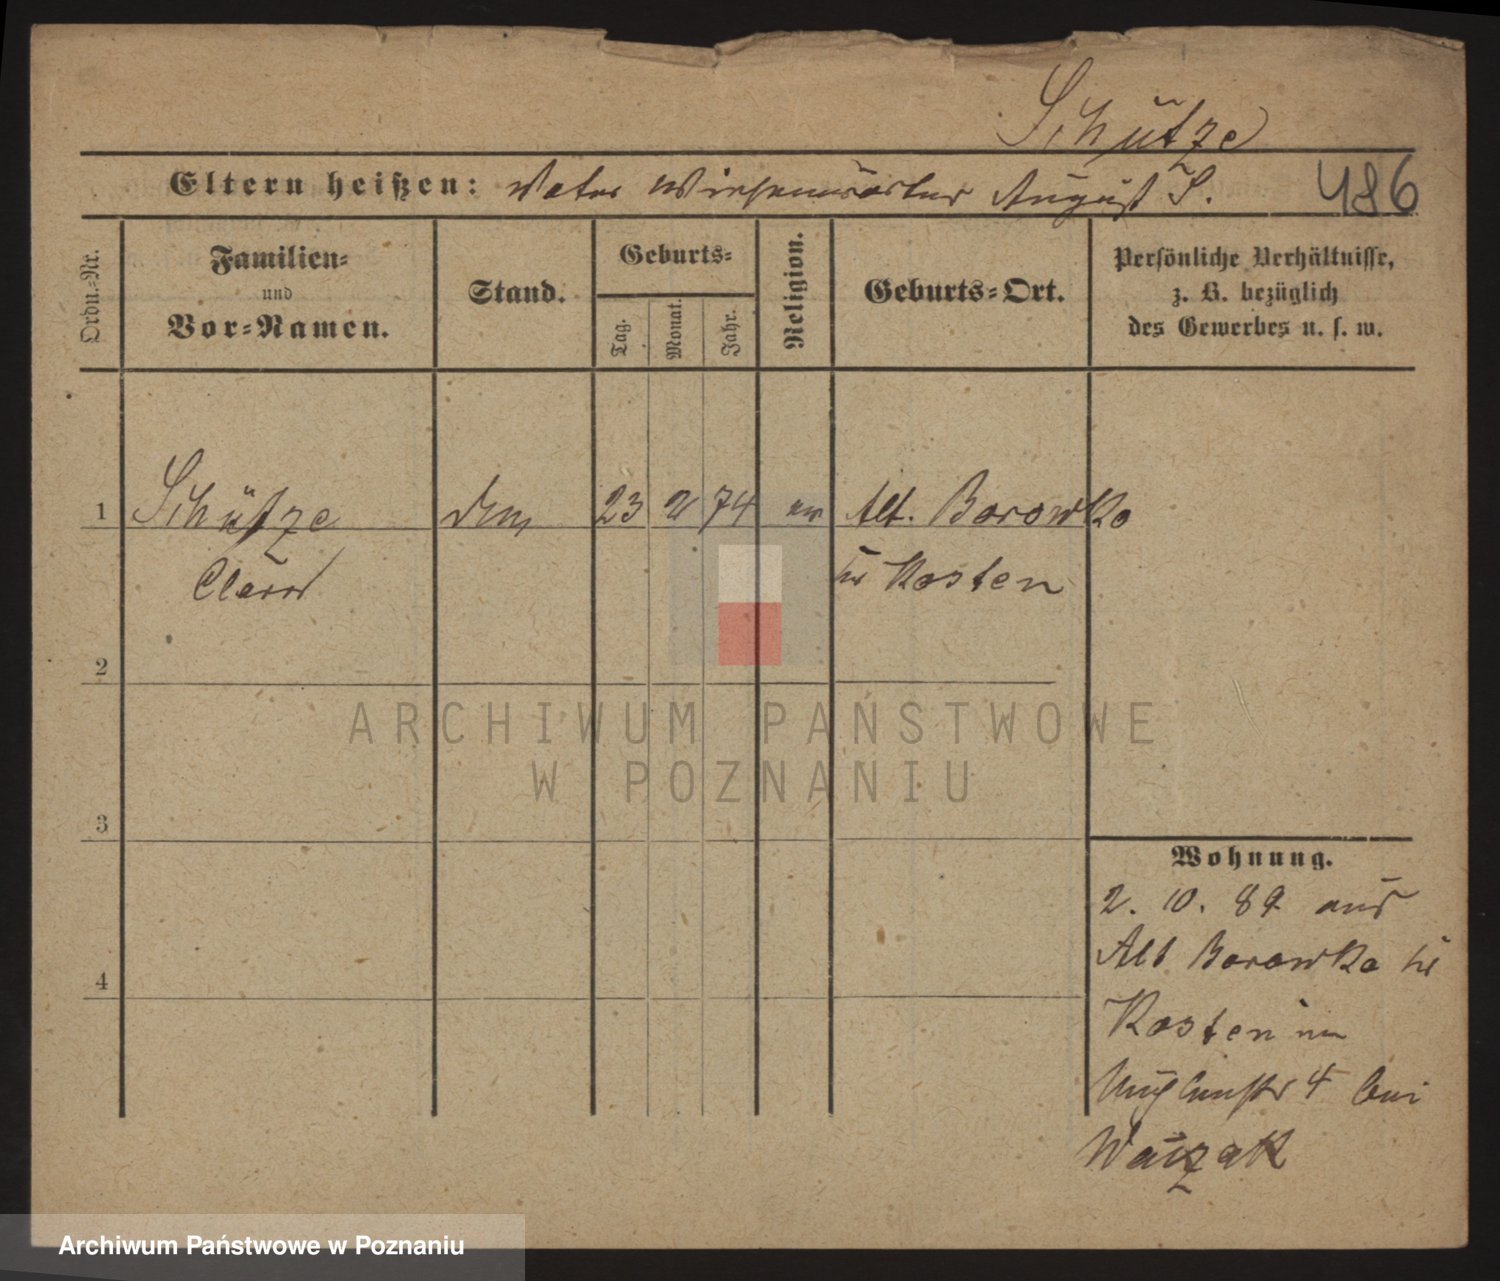 Schütze
Eltern heißen: Vater Wiesenwärter August S.
486
Ordn.-Nr.
Familien-
und
Vor-Namen.
Stand.
Geburts-
Tag.
Monat.
Jahr.
Religion.
Geburts-Ort.
Persönliche Verhältnisse,
z. B. bezüglich
des Gewerbes u. s. w.
1 Schütze 23 2 74 ev Alt. Borowko
Clara Kr Kosten
2
3
4
Wohnung.
2. 10. 89 aus
Alt Borowko Kr
Kosten
4 bei
ARCHIWUM PAŃSTWOWE
W POZNANIU
Archiwum Państwowe w Poznaniu